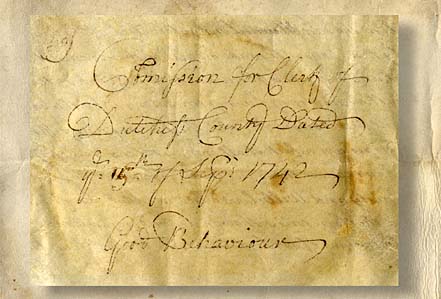 Comission for Clerk of
Dutchess County Dated
ye 15th of Sepr 1742
Good Behaviour